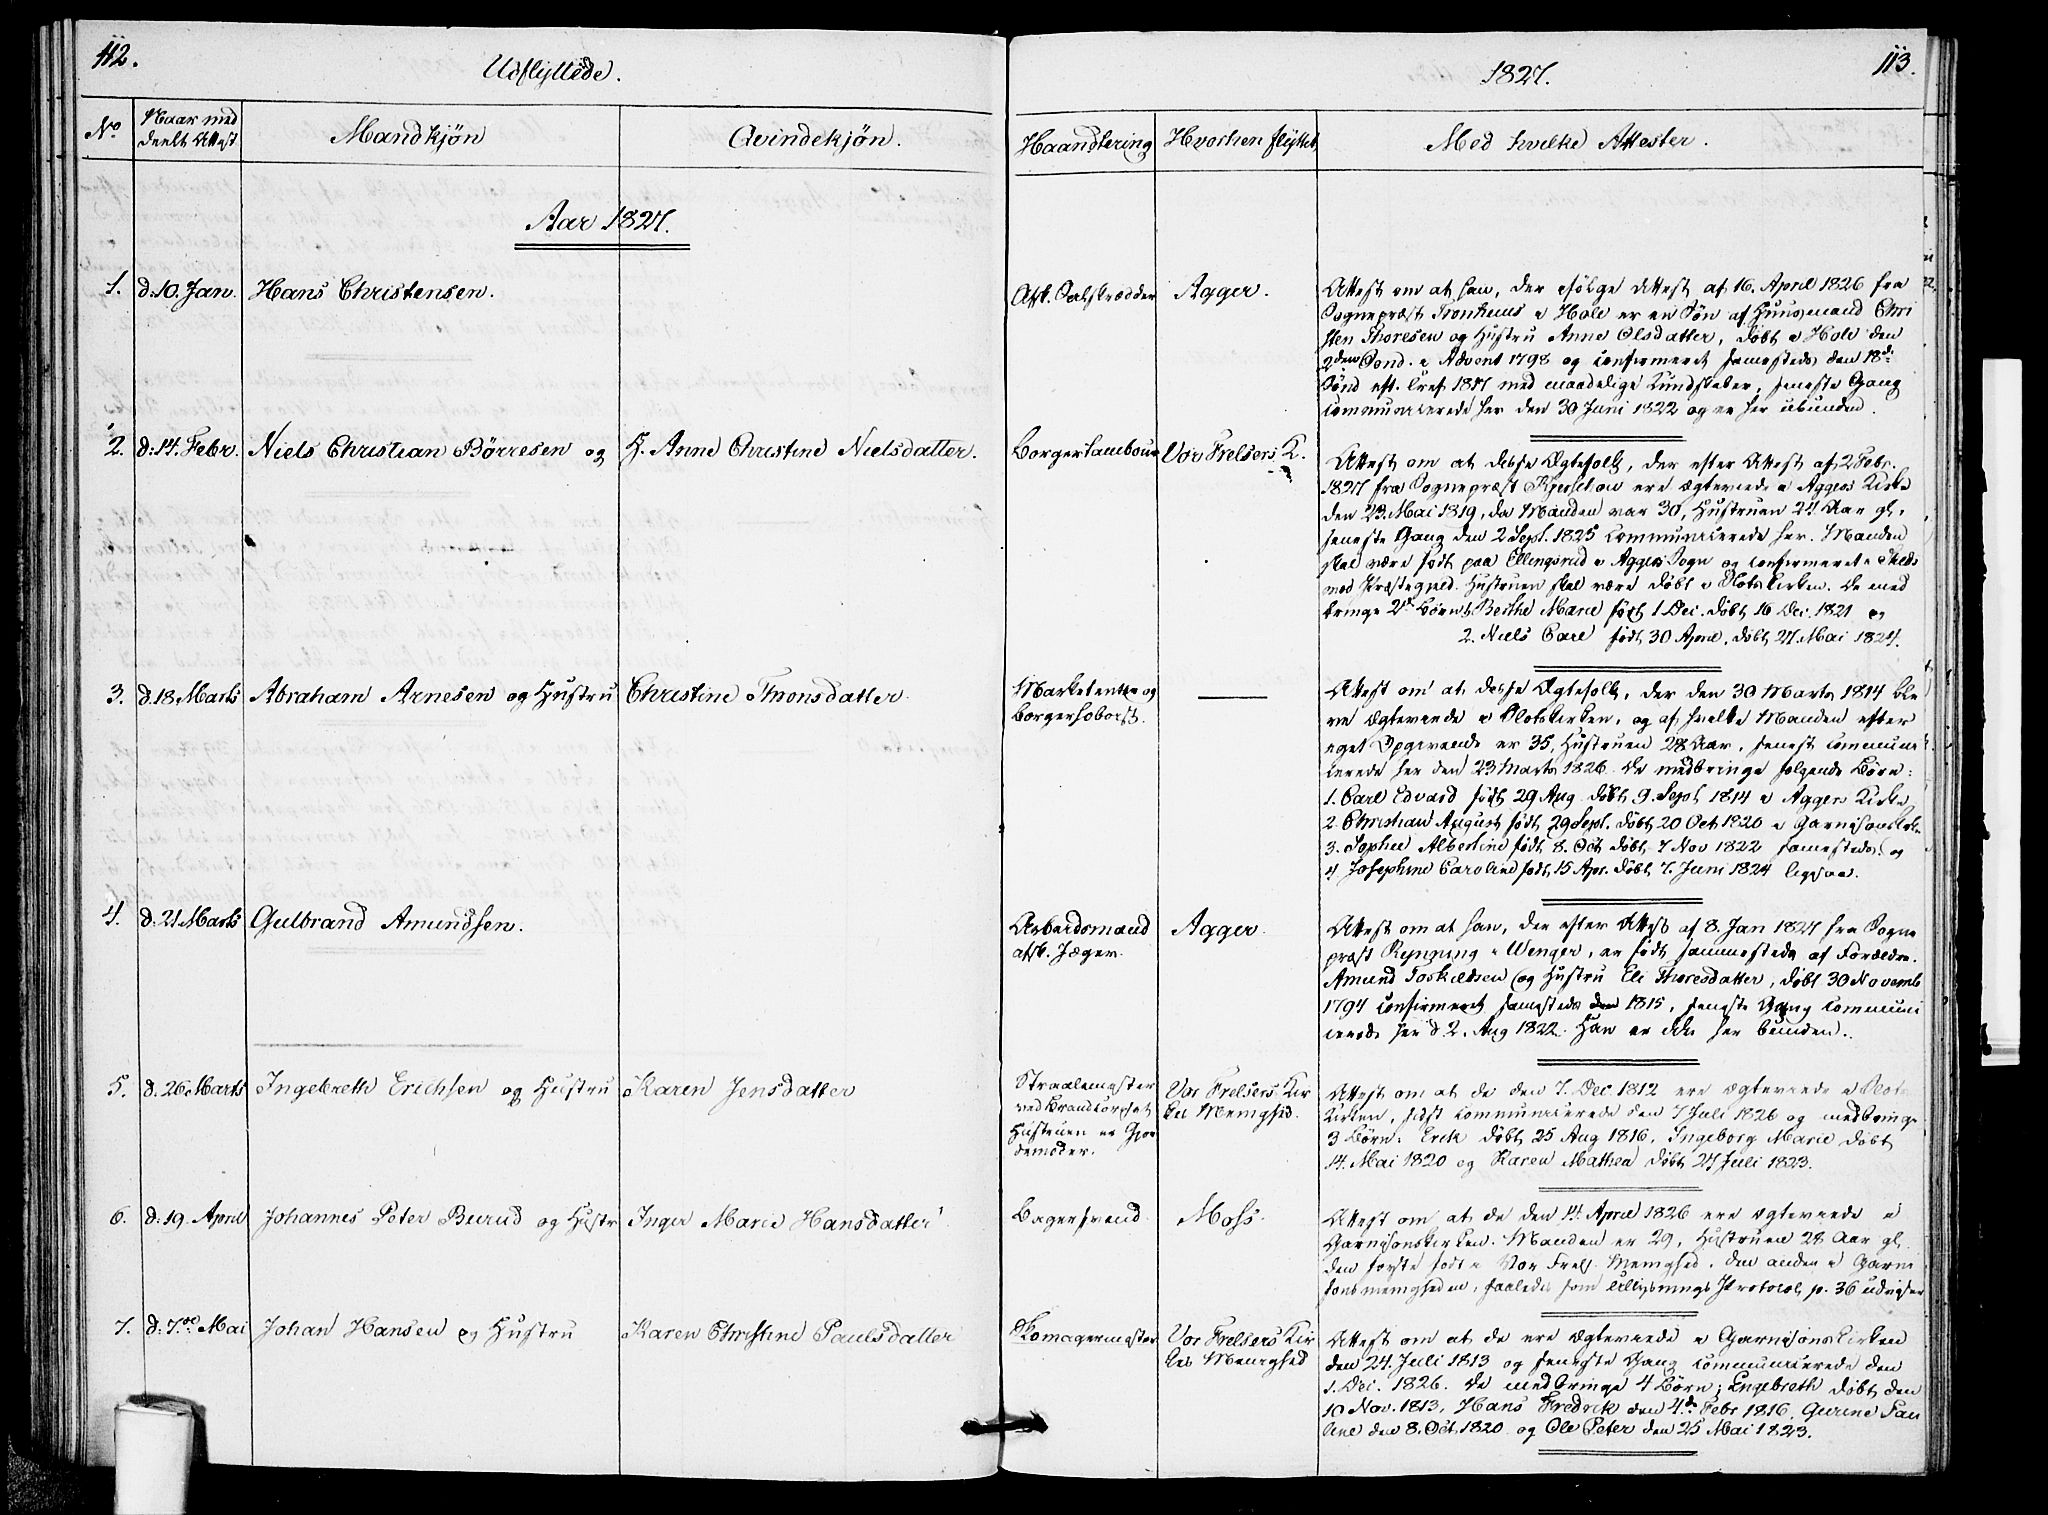 112.
Udflyttede.
No
Naar med
deelt Attest
Mandkjøn
Qvindekjøn.
Aar 1827.
1. d: 10. Jan. Hans Christensen.
2. d: 14. Febr. Niels Christian Börresen og H. Anne Christine Nielsdatter.
3. d. 18 Marts Abraham Arnesen og Hustru Christine Thronsdatter.
4. d: 21 Marts Gulbrand Amundsen.
5. d. 26 Marts Ingebreth Erichsen og Hustru Karen Jensdatter
6. d: 19. April Johannes Peter Burud og Hustr Inger Marie Hansdatter
7. d: 7de Mai Johan Hansen og Hustru Karen Christine Paulsdatter
1827.
113.
Haandtering
Hvorhen flyttet
Med hvilke Attester.
Afsk. Oatskrædder
Agger.
Attest om at han, der ifölge Attest af 16. April 1826 fra
Sognepræst Tronhuus i Hole er en Sön af Huusmand Chri
sten Thoresen og Hustru Anne Olsdatter, döbt i Hole den
2den Sönd. i Advent 1798 og confirmeret samesteds den 18de
Sönd eft. Tref 1817 med maadelige Kundskaber, seneste Gang
communicerede her den 30 Juni 1822 og er her ubunden.
Borgertambour
Vor Frelsers K.
Attest om at disse Ægtefolk, der efter Attest af 2 Febr.
1827 fra Sognepræst Kjerschow ere ægteviede i Aggers Kirke
den 23. Mai 1819, da Manden var 30, Hustruen 24 Aar gl,
seneste Gang den 2 Sept. 1825 communicerede her. Manden
skal være födt paa Ellingsrud i Aggers Sogn og confirmeret i Skeds
moe Præstegield. Hustruen skal være döbt i Slotskirken. De med
bringe 2de Börn 1. Berthe Marie födt 1 Dec. döbt 16 Dec. 1821 og
2. Niels Carl födt 30 April, döbt 27. Mai 1824.
Marketenter og
borgerhoboist.
Attest om at disse Ægtefolk, der den 30 Marts 1814 ble
ve ægteviede i Slotskirken, og af hvilke Manden efter
eget Opgivende er 35, Hustruen 28 Aar, senest communi
cerede her den 23 Marts 1826. De medbringe følgende Börn:
1. Carl Edvard födt 29 Aug. döbt 9. Sept 1814 i Aggers Kirke,
2 Christian August födt 29 Sept. döbt 20 Oct 1820 i Garnisonskirke
3. Sophie Albertine födt 8. Oct döbt 7 Nov 1822 samesteds og
4 Josephine Caroline födt 15 Apr. döbt 7. Juni 1824 ligesaa.
Arbeidsmand
afsk. Jæger.
Agger.
Attest om at han, der efter Attest af 8. Jan 1827 fra Sogne
præst Rynning i Wenger, er födt sammesteds af Forældre
Amund Torkildsen og Hustru Eli Thoresdatter, döbt 30 Novemb
1794 confirmeret samesteds den 1815, seneste Gang communi
cerede her d 2. Aug 1822. Han er ikke her bunden.
Straalemester
ved Brandcorpset
Hustruen er Gjor
demoder.
Vor Frelsers Kir
kes Menighed.
Attest om at de den 7. Dec. 1812 ere ægteviede i Slots
kirken, sidst communicerede den 7 Juli 1826 og medbringe
3 Börn: Erik döbt 25 Aug 1816, Ingeborg Marie döbt
14. Mai 1820 og Karen Mathea döbt 27 Juli 1823.
Bagersvend
Moss.
Attest om at de den 14. April 1826 ere ægteviede i
Garnisonskirken. Manden er 29, Hustruen 28 Aar gl.
den første födt i Vor Frels. Menighed, den anden i Garni
sonsmenigheden, saaledes som Lillysnings Protocol p. 36 udviser
Skomagermester
Vor Frelsers Kir
kes Menighed
Attest om at de ere ægteviede i Garnisonskirken
den 24. Juli 1813 og seneste Gang communicerede den
1. Dec. 1826. De medbringe 4 Börn; Engebreth döbt den
10 Nov. 1813, Hans Fredrik den 4de Febr 1816, Gurine Pau
line den 8. Oct. 1820 og Ole Peter den 25 Mai 1823.